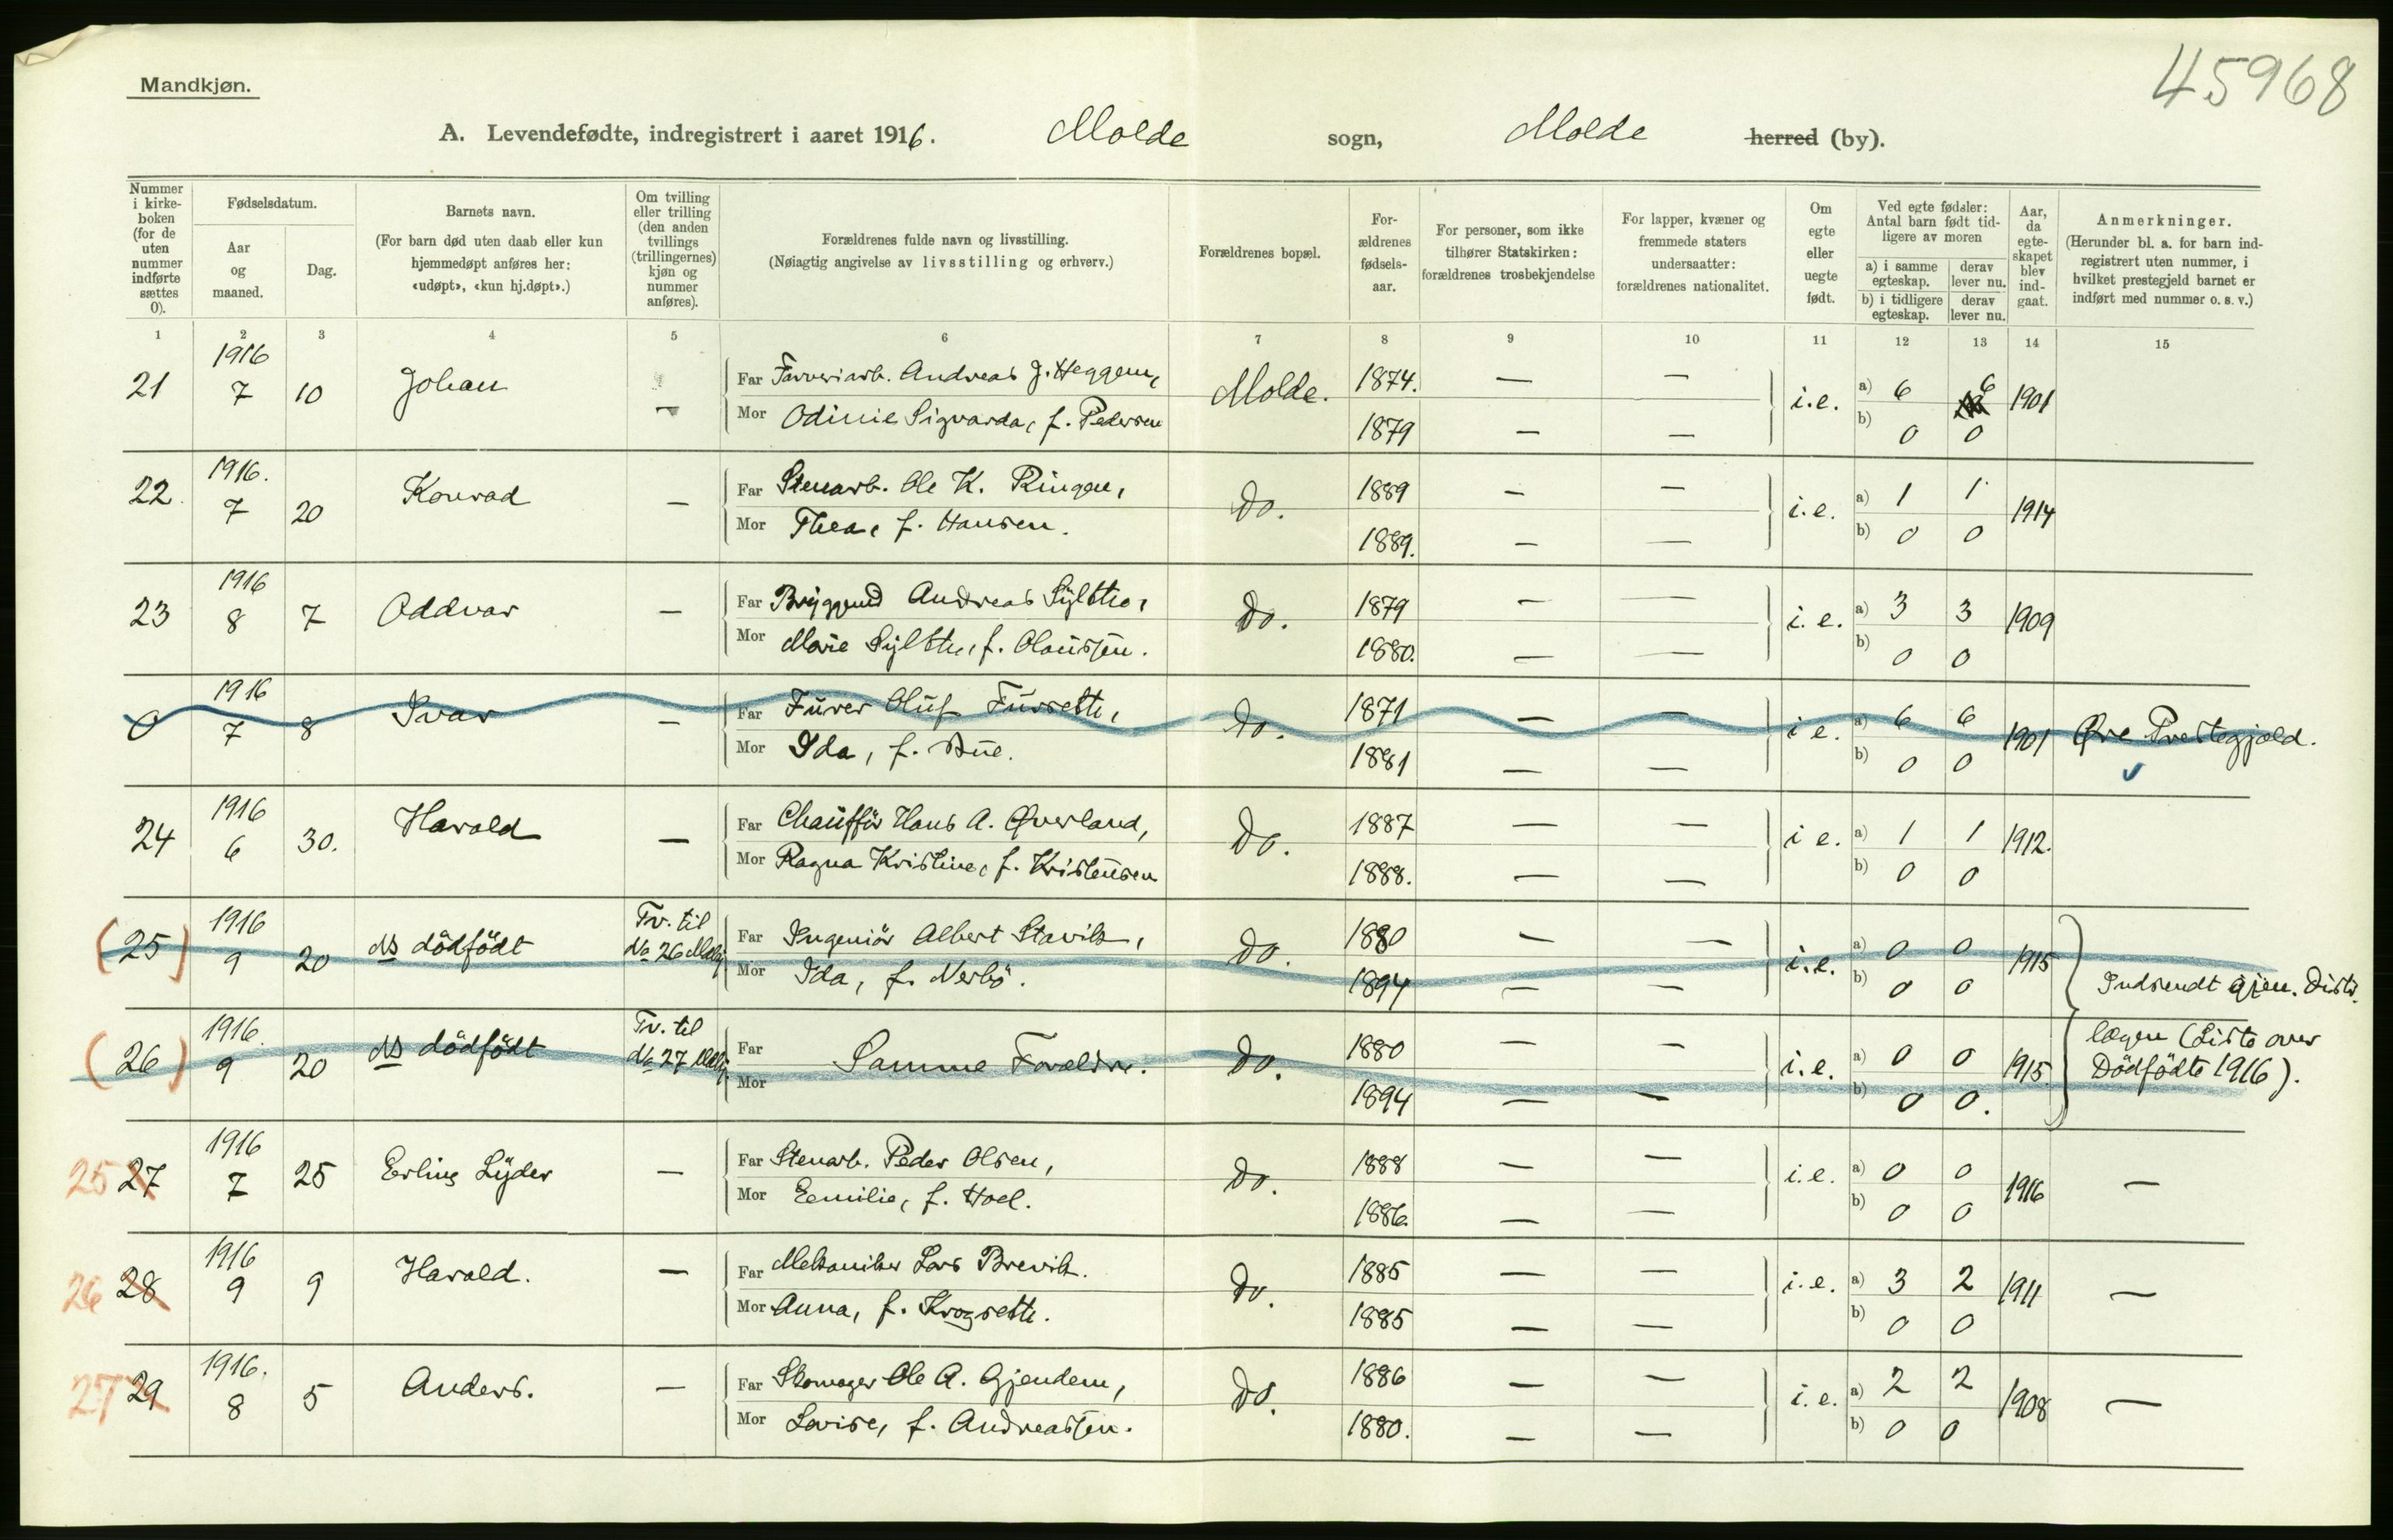 45968
Mandkjøn.
A. Levendefødte, indregistrert i aaret 1916. Molde sogn, Molde herred (by).
Nummer i kirke-boken (for de uten nummer indførte sættes 0).
Fødselsdatum.
Aar og maaned.
Dag.
Barnets navn.
(For barn død uten daab eller kun hjemmedøpt anføres her: «udøpt», «kun hj.døpt».)
Om tvilling eller trilling (den anden tvillings (trillingernes) kjøn og nummer anføres).
Forældrenes fulde navn og livsstilling.
(Nøiagtig angivelse av livsstilling og erhverv.)
Forældrenes bopæl.
For-ældrenes fødsels-aar.
For personer, som ikke tilhører Statskirken: forældrenes trosbekjendelse
For lapper, kvæner og fremmede staters undersaatter: forældrenes nationalitet.
Om egte eller uegte født.
Ved egte fødsler: Antal barn født tid-ligere av moren
a) i samme egteskap. derav lever nu.
b) i tidligere egteskap. derav lever nu.
Aar, da egte-skapet blev ind-gaat.
Anmerkninger.
(Herunder bl. a. for barn ind-registrert uten nummer, i hvilket prestegjeld barnet er indført med nummer o. s. v.)
1 2 3 4 5 6 7 8 9 10 11 12 13 14 15
21 1916 7 10 Johan — Far Farveriarb. Andreas J. Heggem, Molde. 1874. — — i.e. a) 6 6 1901
Mor Odinie Sigvarda, f. Pedersen 1879 — — b) 0 0
22. 1916. 7 20 Konrad — Far Stenarb. Ole K. Ringen, Do. 1889 — — i.e. a) 1 1 1914
Mor Thea, f. Hansen. 1889. — — b) 0 0
23 1916 8 7 Oddvar — Far Andreas Sylte, Do. 1879 — — i.e. a) 3 3 1909
Mor Marie Sylte, f. Olaussen. 1880. — — b) 0 0
0 1916 7 8 Ivar — Far Furer Oluf Fursette, Do. 1871 — — i e. a) 6 6 1901 Øre Prestegjæld.
Mor Ida, f. Bue. 1881 — — b) 0 0
24 1916 6 30. Harald — Far Chauffør Hans A. Øverland, Do. 1887 — — i e. a) 1 1 1912.
Mor Ragna Kristine, f. Kristensen 1888. — — b) 0 0
(25) 1916 9 20 dödfödt Tv. til No 26 Far Ingeniör Albert Stavik, Do. 1880 — — i.e. a) 0 0 1915
Mor Ida, f. Nerbö. 1894 — — b) 0 0 Indsendt gjen. Distr.
(26) 1916. 9 20 dödfödt Tv. til No 27 Far Mor Samme Forældre. Do. 1880 — — i.e. a) 0 0 1915 lægen (Liste over
1894 — — b) 0 0. Dödfödte 1916).
25 27 1916 7 25 Erling Lyder — Far Stenarb. Peder Olsen, Do. 1888 — — i.e. a) 0 0 1916 —
Mor Emilie, f. Hoel. 1886. — — b) 0 0
26 28 1916 9 9 Harald. — Far Mekaniker Lars Brevik. Do. 1885 — — i.e. a) 3 2 1911 —
Mor Anna, f. Krogsette. 1885 — — b) 0 0
27 29 1916. 8 5 Anders. — Far Skomager Ole A. Gjendem, Do. 1886 — — i.e. a) 2 2 1908 —
Mor Lovise, f. Andreassen. 1880. — — b) 0 0